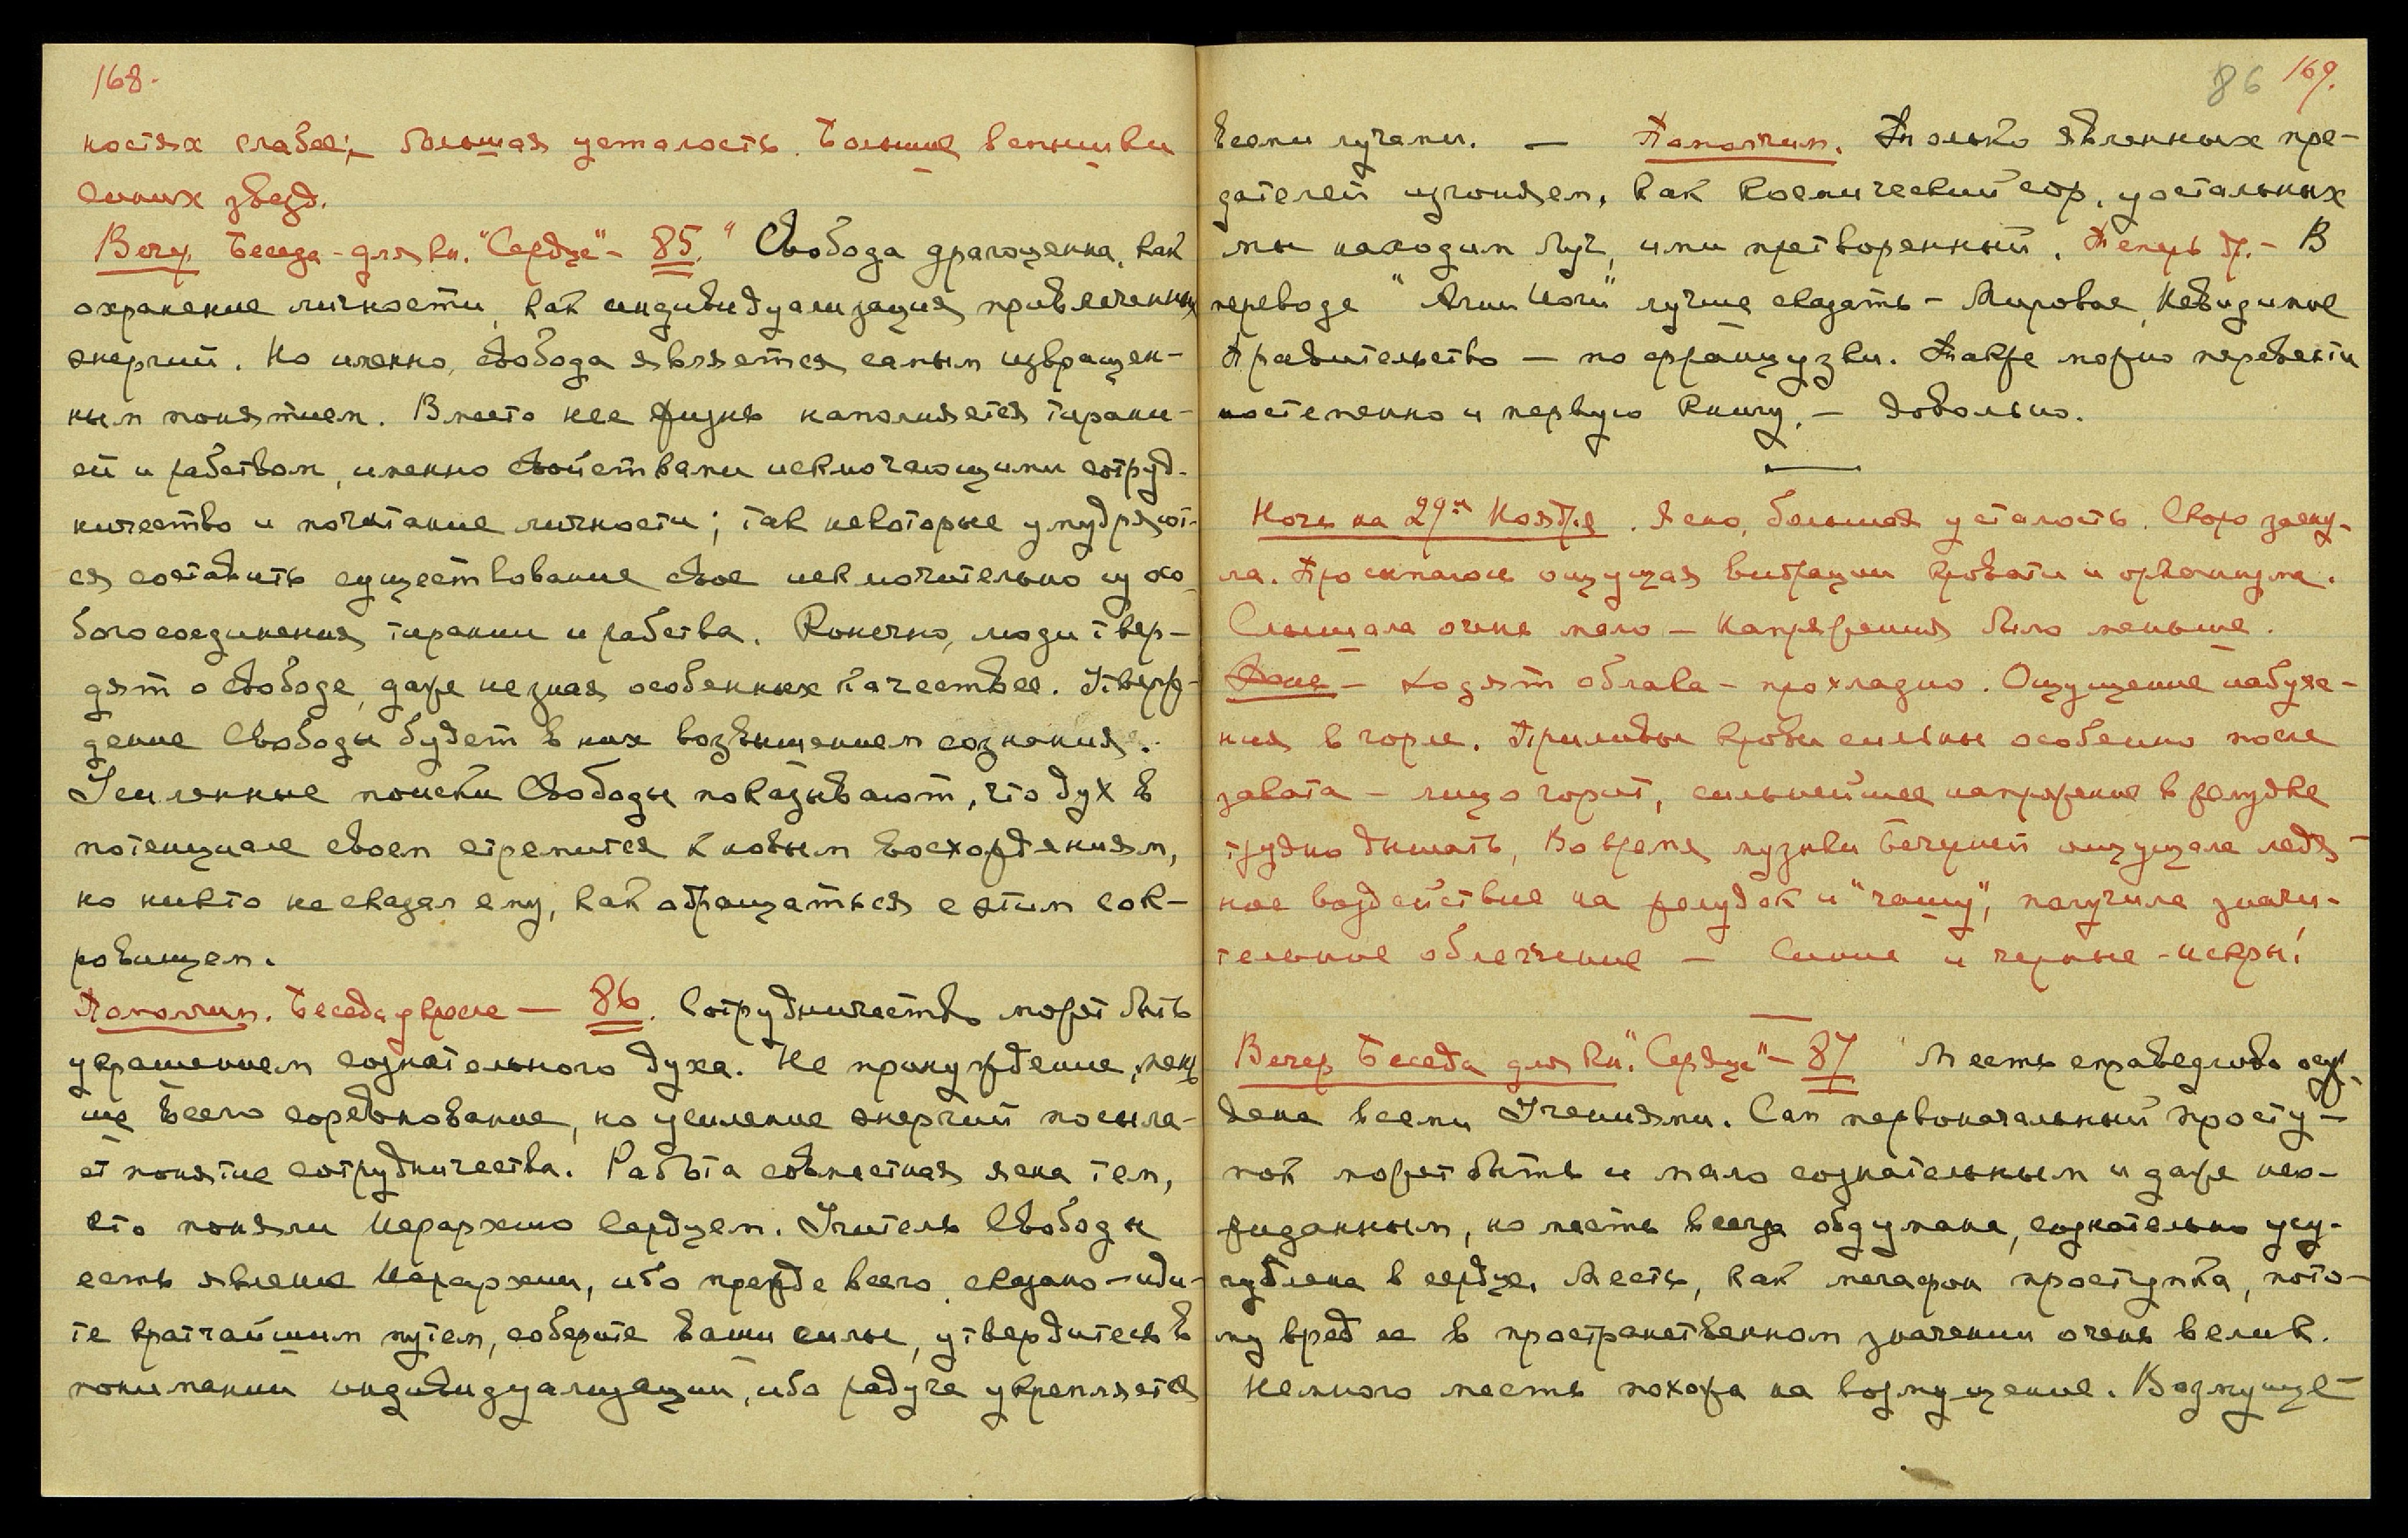 168.
ностях слабее; большая усталость. Большие вспышки
синих звезд.
Вечер. Беседа - для кн. "Сердце" - 85. " Свобода драгоценна, как
охранение личности, как индивидуализация привлеченных
энергий. Но именно, свобода является самым извращен-
ным понятием. Вместо нее жизнь наполняется тирани-
ей и рабством, именно свойствами исключающими сотруд-
ничество и почитание личности; так некоторые умудряют-
ся составить существование свое исключительно из осо-
бого соединения тирании и рабства. Конечно, люди твер-
дят о свободе, даже не зная особенных качеств ее. Утверж-
дение Свободы будет в них возвышением сознания.
Усиленные поиски Свободы показывают, что дух в
потенциале своем стремится к новым восхождениям,
но никто не сказал ему, как обращаться с этим сок-
ровищем.
Пополним. Беседа укроме — 86. Сотрудничество может быть
украшением сознательного духа. Не принуждение, мень
ше всего соревнование, но усиление энергий посыла-
ет понятие сотрудничества. Работа совместная ясна тем,
кто поняли Иерархию Сердцем. Учитель Свободы
есть явление Иерархии, ибо прежде всего сказано - иди-
те кратчайшим путем, соберите ваши силы, утвердитесь в
понимании индивидуализации, ибо радуга укрепляется
86 169.
всеми лучами. — Пополним. Только явленных пре-
дателей изгоняем, как космический сор, у остальных
мы находим луч, ими претворенный. Теперь др. - В
переводе "Агни Йоги" лучше сказать - Мировое, Невидимое
Правительство — по французски. Также можно перевести
постепенно и первую Книгу. — Довольно.
Ночь на 29ое Ноября. Ясно, большая усталость. Скоро засну-
ла. Просыпалась ощущая вибрации кровати и организма.
Слышала очень мало — Напряжения было меньше.
- ходят облака - прохладно. Ощущение набуха-
ния в горле. Приливы крови сильны особенно после
завтрака - лицо горит, сильнейшее напряжение в желудке
трудно дышать, Во время музыки вечерней ощущала ледя-
ное воздействие на желудок и "чашу", получила значи-
тельное облегчение — Синие и черные - искры!
Вечер. Беседа для Кн. "Сердце" - 87 " Месть справедливо осуж-
дена всеми Учениями. Сам первоначальный просту-
пок может быть и мало сознательным и даже нео-
жиданным, но месть всегда обдумана, сознательно усу-
гублена в сердце. Месть, как мегафон проступка, пото-
му вред ее в пространственном значении очень велик.
Немного месть похожа на возмущение. Возмуще-